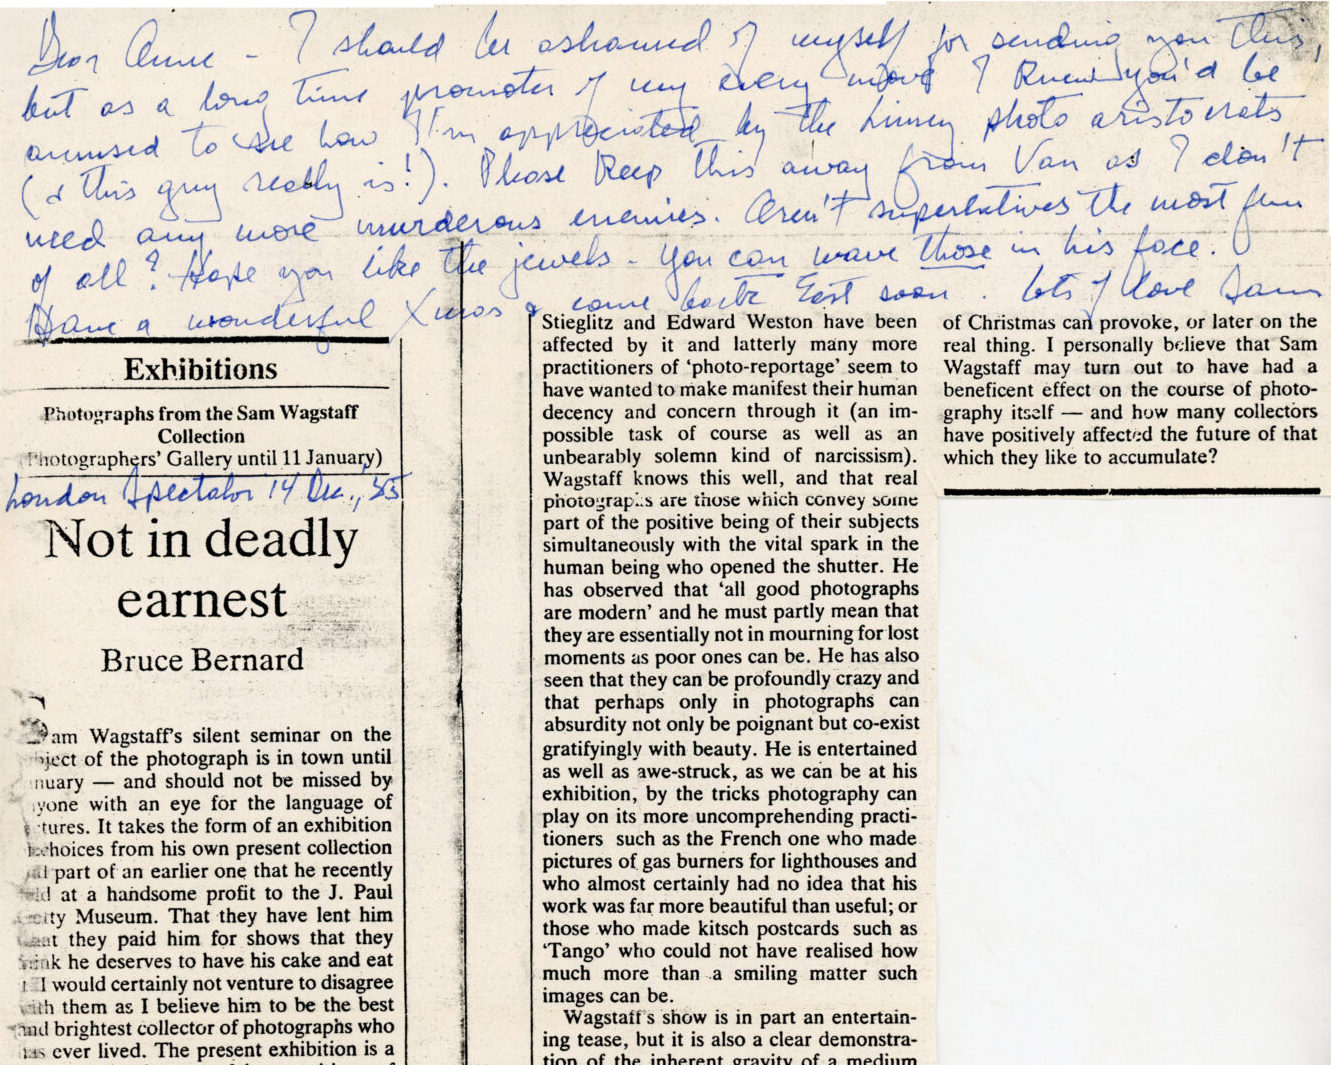 Dear Anne - I should be ashamed of myself for sending you this,
but as a long time promoter of my every move I knew you'd be
amused to see how I'm appreciated by the Limey photo aristocrats
(& this guy really is!). Please keep this away from Van as I don't
need any more murderous enemies. Aren't superlatives the most fun
of all? Hope you like the jewels - you can wave those in his face.
Have a wonderful Xmas & come back East soon. Lots of love Sam
Exhibitions
Photographs from the Sam Wagstaff
Collection
(Photographers' Gallery until 11 January)
London Spectator 14 Dec., '85
Not in deadly
earnest
Bruce Bernard
Sam Wagstaff's silent seminar on the
ject of the photograph is in town until
nuary — and should not be missed by
yone with an eye for the language of
tures. It takes the form of an exhibition
choices from his own present collection
part of an earlier one that he recently
ld at a handsome profit to the J. Paul
etty Museum. That they have lent him
at they paid him for shows that they
nk he deserves to have his cake and eat
I would certainly not venture to disagree
th them as I believe him to be the best
and brightest collector of photographs who
has ever lived. The present exhibition is a
Stieglitz and Edward Weston have been
affected by it and latterly many more
practitioners of 'photo-reportage' seem to
have wanted to make manifest their human
decency and concern through it (an im-
possible task of course as well as an
unbearably solemn kind of narcissism).
Wagstaff knows this well, and that real
photographs are those which convey some
part of the positive being of their subjects
simultaneously with the vital spark in the
human being who opened the shutter. He
has observed that 'all good photographs
are modern' and he must partly mean that
they are essentially not in mourning for lost
moments as poor ones can be. He has also
seen that they can be profoundly crazy and
that perhaps only in photographs can
absurdity not only be poignant but co-exist
gratifyingly with beauty. He is entertained
as well as awe-struck, as we can be at his
exhibition, by the tricks photography can
play on its more uncomprehending practi-
tioners such as the French one who made
pictures of gas burners for lighthouses and
who almost certainly had no idea that his
work was far more beautiful than useful; or
those who made kitsch postcards such as
'Tango' who could not have realised how
much more than a smiling matter such
images can be.
Wagstaff's show is in part an entertain-
ing tease, but it is also a clear demonstra-
tion of the inherent gravity of a medium
of Christmas can provoke, or later on the
real thing. I personally believe that Sam
Wagstaff may turn out to have had a
beneficent effect on the course of photo-
graphy itself — and how many collectors
have positively affected the future of that
which they like to accumulate?